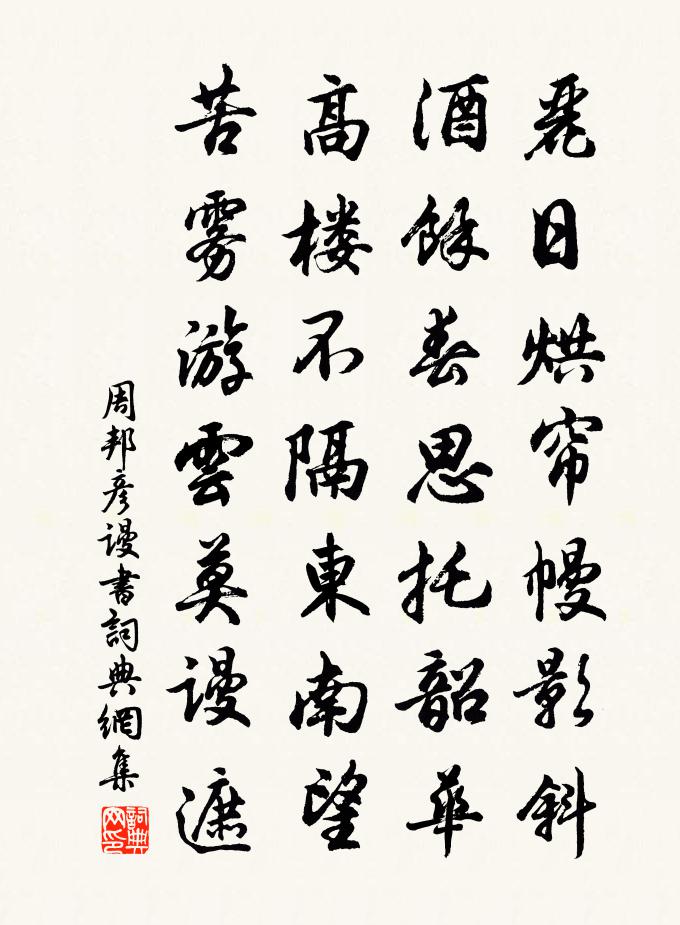 麗日烘帘幔影斜
酒餘春思托韶華
高楼不隔東南望
苦雾游雲莫謾遮
周邦彦謾書詞典網集
詞典网印